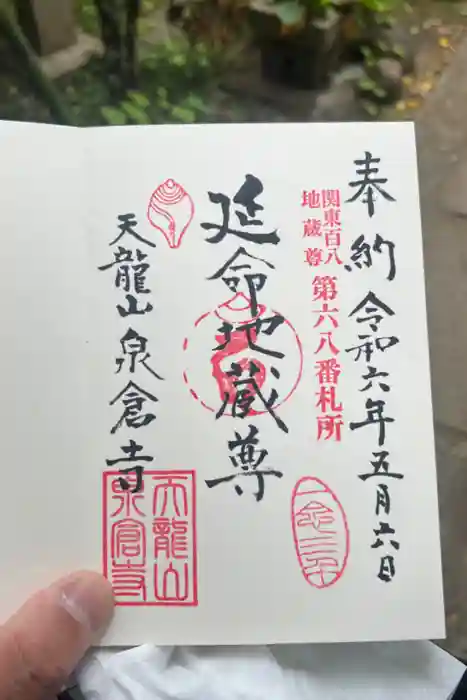 奉納 令和六年五月六日
関東百八
地蔵尊
第六八番札所
一念三千
延命地蔵尊
天龍山 泉倉寺
天龍山
泉倉寺